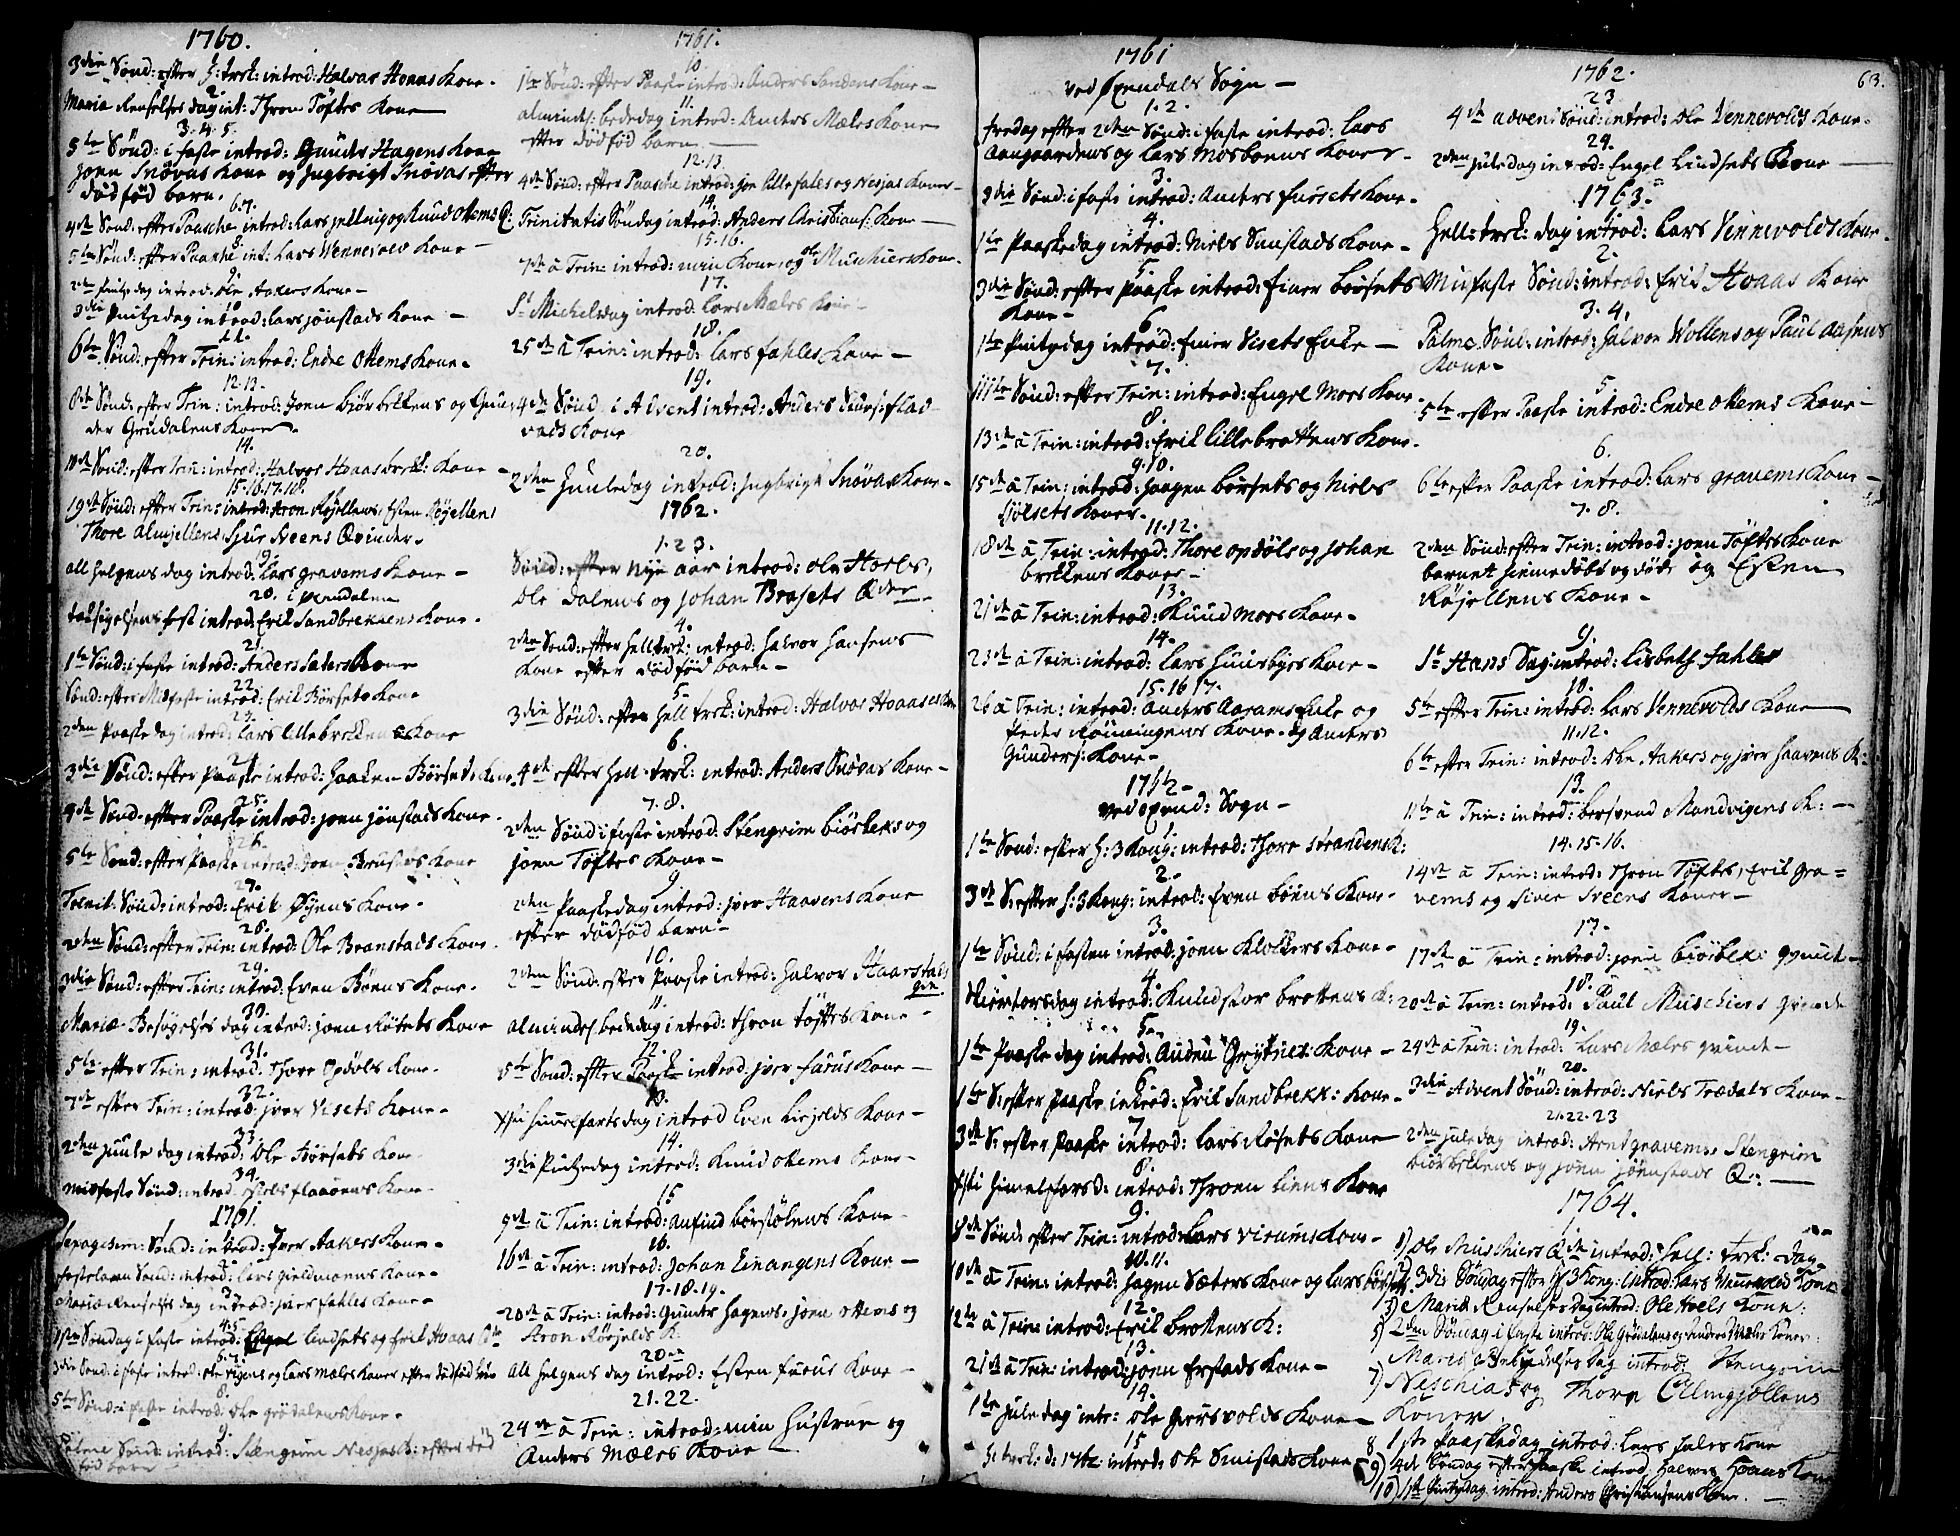 1760.
3die Sønd: efter H: trek: introd: Halvor Hoaas Kone.
2.
Maria Renselses dag int: Thron Tøftes Kone
3. 4. 5.
5te Sønd: i faste introd: Gunder Hagens Kone
joen Snøvas Kone og Ingbrigt Snøvas efter
dødfød barn.
6. 7.
4de Sønd: efter Paasche introd: Lars jellnig og Knud Okems Q:
8.
5te Sønd: efter Paaske int: Lars Vennevold Kone
9.
2den Pintzedag introd: Ole Aakers Kone
10
3die Pintzedag introd: Lars jønstads Kone
11.
6te Sønd: efter Trin: introd: Endre Okems Kone.
12. 13.
8de Sønd: efter Trin: introd: Joen biørbekkens og Gun
der Grudalens Kone
14.
10de Sønd: efter Trin: introd: Halvor Hoaasbrek: Kone
15. 16. 17. 18.
19de Sønd: efter Trin: introd: Aron Røjellens, Esten Røjellens
Thore Almjellens Sjur Neens Qvinder.
19.
all helgens dag introd: Lars gravems Kone
20. i Øxendalen
taksigelsens fest introd: Erik Sandbrekkens Kone.
21.
1te Sønd: i faste introd: Anders Saters Kone
22.
Sønd: efter Midfaste introd: Erik Børsets Kone
23.
2den Paaske dag introd: Lars lillebrekkens Kone
24
3die Sønd: efter Paaske introd: Haaken Børsets Kone
25.
4de Sønd: efter Paaske introd: joen jønstads Kone
26.
5te Sønd: efter Paaske introd: Joen Brustøs Kone
27.
Trinit: Sønd: introd: Erik Øyens Kone.
28.
2den Sønd: efter Trin: introd: Ole Branstads Kone
29.
3die Sønd: efter Trin: introd: Even Bøens Kone.
30.
Mariæ Besøgelses dag introd: joen Røsets Kone
31.
5te efter Trin: introd: Thore Opdøls Kone.
32.
7de efter Trin: introd: jver Visets Kone.
33.
2den juule dag introd: Ole Børsets Kone
34.
midfaste Sønd: introd: Niels flaaøens Kone
1761.
1.
Sexagesim: Sønd: introd: Iver Aakers Kone
2.
fastelavn Sønd: introd: Lars Gieldmoens Kone
3.
Mariæ Renselses dag introd: jver fahles Kone
4. 5.
1ste Søndag i faste introd: Engel lindsets og Erik Hoaas Qdr
6. 7.
3die Sønd: i faste introd: Ole Vigens og Lars mæles Koner efter dødfød børn
8.
5te Sønd: i faste introd: Ole grødalens Kone.
9.
Palme Sønd: introd: Stengrim Nesjas K: efter død
fød barn
1761.
10.
1te Sønd: efter Paaske introd: Anders Sandens Kone
11.
almindel: bededag introd: Anders Mæles Kone
efter dødfød barn.
12. 13.
4de Sønd: efter Paasche introd: Joe Lillefales og Nesjas Koner
14.
Trinitatis Søndag introd: Anders Christians: Kone
15. 16.
7de à Trin: introd: min Kone, og Ole Muschiers Kone.
17.
St Michelsdag introd: Lars Mæles Kone
18.
25de à Trin: introd: Lars fahles Kone
19.
4de Sønd: i Advent introd: Anders flad
vads Kone
20.
2den Juuledag introd: Ingbrigt Snøvas Kone.
1762.
1. 2 3.
Sønd: efter nye aar introd: Ole Hoels,
Ole Dalens og Johan Brasets Qder
4.
2den Sønd: efter hell: trek: introd: Halvor Hansens
Kone efter dødfød barn
5.
3die Sønd: efter hell trek: introd: Halvor Hoaas
6.
4de efter hell: trek: introd: Anders Snøvas Kone
7. 8.
2den Sønd i faste introd: Stengrim biørbeks og
joen Tøftes Kone
9
2den Paaskedag introd: jver Haavens Kone
efter dødfød barn
10.
2den Sønd: efter Paaske introd: Halvor Haarstads
qv:
11.
almindel bededag introd: thron tøftes Kone
12.
5te Sønd: efter Paaske introd: jver furus Kone
13.
Xsti himmelfartsdag introd Even Kirjelds Kone
14.
3die Pintzedag introd: Knud Okems Kone
15
9de à Trin: introd: anfind børstølens Kone
16.
16de à Trin: introd: Johan Einangens Kone
17. 18. 19.
20de à Trin: introd: Gunder Hagens: joen Okems og
Aron Rørjelds K:
20de
All helgens dag introd: Esten furus Kone
21. 22.
24de à Trin: introd: min Hustrue og
Anders Mæles Kone
1761
ved Øxendals Sogn
1. 2.
fredag efter 2den Sønd: i faste introd: Lars
Aangaardens og Lars Mosboens Koner.
3.
3die Sønd: i faste introd: Anders fursets Kone.
4.
1te Paaskedag introd: Niels Sunstads Kone
5.
3die Sønd: efter Paaske introd: Einer børsets
Kone
6
1te Pintzedag introd: Einer Visets Enke
7.
11te Sønd: efter Trin: introd: Engel Moes Kone
8.
13de à Trin: introd: Erik lillebrottens Kone.
9. 10.
15de à Trin: introd: haagen børsets og Niels
fjølsets Koner.
11. 12.
18de à Trin: introd: Thore opdøls og Johan
brekkens Koner
13.
21de à Trin: introd: Knud moes Kone.
14.
23de à Trin: introd: Lars Huusbyes Kone
15. 16 17.
26 à Trin: introd: Anders Aarams Enke og
Peder Rømingens Kone. og Anders
Gunders: Kone
1762
ved Øxend: Sogn
1te Sønd: efter h: 3 Kong: introd: Thore Strandens K:
2.
3de S: efter h: 3 Kong: introd: Even bøens Kone
3.
1te Sønd: i fasten introd: joen Klokkers Kone
4.
Skiertorsdag introd: Knud stor brottens K:
5.
1te Paaske dag introd: Auden Grytnes: Kone
6
1te S: efter paaske introd: Erik Sandbrekk: Kone
7
3de S: efter Paaske introd: Lars Røsets Kone
8.
Xsti himelfarsd: introd: Throen Liens Kone
9.
8de Sønd: efter Trin: introd: Lars Virums Kone
10. 11.
10de à Trin: introd: Hagen Sæters Kone og Lars børsets
12.
12te à Trin: introd: Erik brottens K:
13.
21de à Trin: introd: joen Erstads Kone
14.
1te juledag intr: Ole gersvolds Kone
15
H: trek: d: 1762 introd: Ole Snistads Kone
63.
1762.
23
4de advent Sønd: introd: Ole Vennevolds Kone.
24.
2den juledag introd: Engel Lindsets Kone
1763.
1.
Hell: trek: dag introd: Lars Vennevolds Kone
2.
Midfaste Sønd: introd: Erik Hoaas Kone
3. 4.
Palme Sønd: introd: Halvor Wollens og Paul Aasens
Kone
5
5te efter Paaske introd: Endre Okems Kone
6.
6te efter Paaske introd: Lars gravems Kone
7. 8.
2den Sønd: efter Trin: introd: joen Tøftes Kone
barnet hiemedøbt og død og Esten
Røjellens Kone
9.
St Hans Dag: introd: Lisbeth fahle
10.
5te efter Trin: introd: Lars Vennevolds Kone
11. 12.
6te efter Trin: introd: Ole Aakers og jver haavens K:
13.
11te à Trin: introd: bersvend Mandvigens K:
14. 15. 16.
14de à Trin: introd: Thron Tøftes, Erik Gra=
vems og Siver Sveens Koner
17.
17de à Trin: introd: joen biørbek: qvinde
18.
20de à Trin: introd: Paul Muschiers qvinde
19.
24de à Trin: introd: Lars Mæles qvinde
20.
3die Advent Sønd: introd: Niels Trædals Kone
21. 22. 23
2den juledag introd: Arnt gravems, Stengrim
biørbekkens og joen jønstads Q:
1764.
1) Ole Muschiers Qde introd: Hell: trek: dag.
2) 3die Søndag efter H: 3 Kong: introd: Lars Vennevold Kone
3) Mariæ Renselses Dag introd: Ole Hoels Kone:
5) 2den Søndag i faste introd: Ole Grødalens og Anders Mæles Koner:
Mariæ Bebudelses Dag introd: Stengrim
7) Neschias og Thore Almgjellens
Koner
8 1ste Paaskedag introd: Lars Fales Kone
9) 4de Søndag efter Paaske introd: Halvor Hoaas Kone
10) 1ste Pintzdag introd: Anders Christiansens Kone.